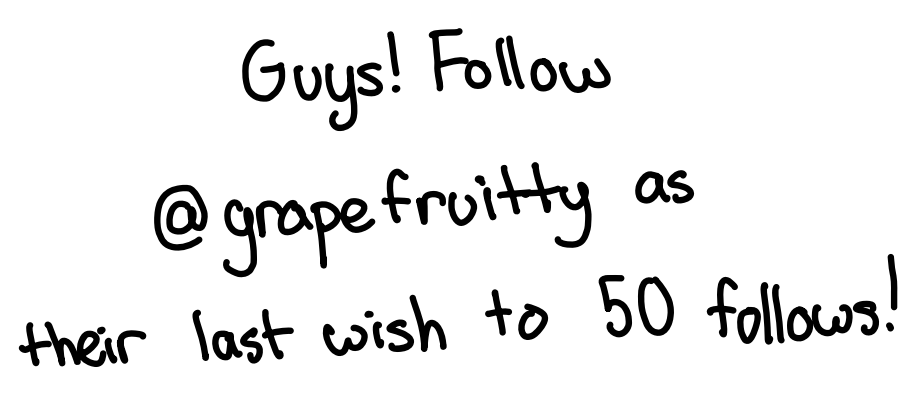 Guys! Follow
@grapefruitty as
their last wish to 50 follows!